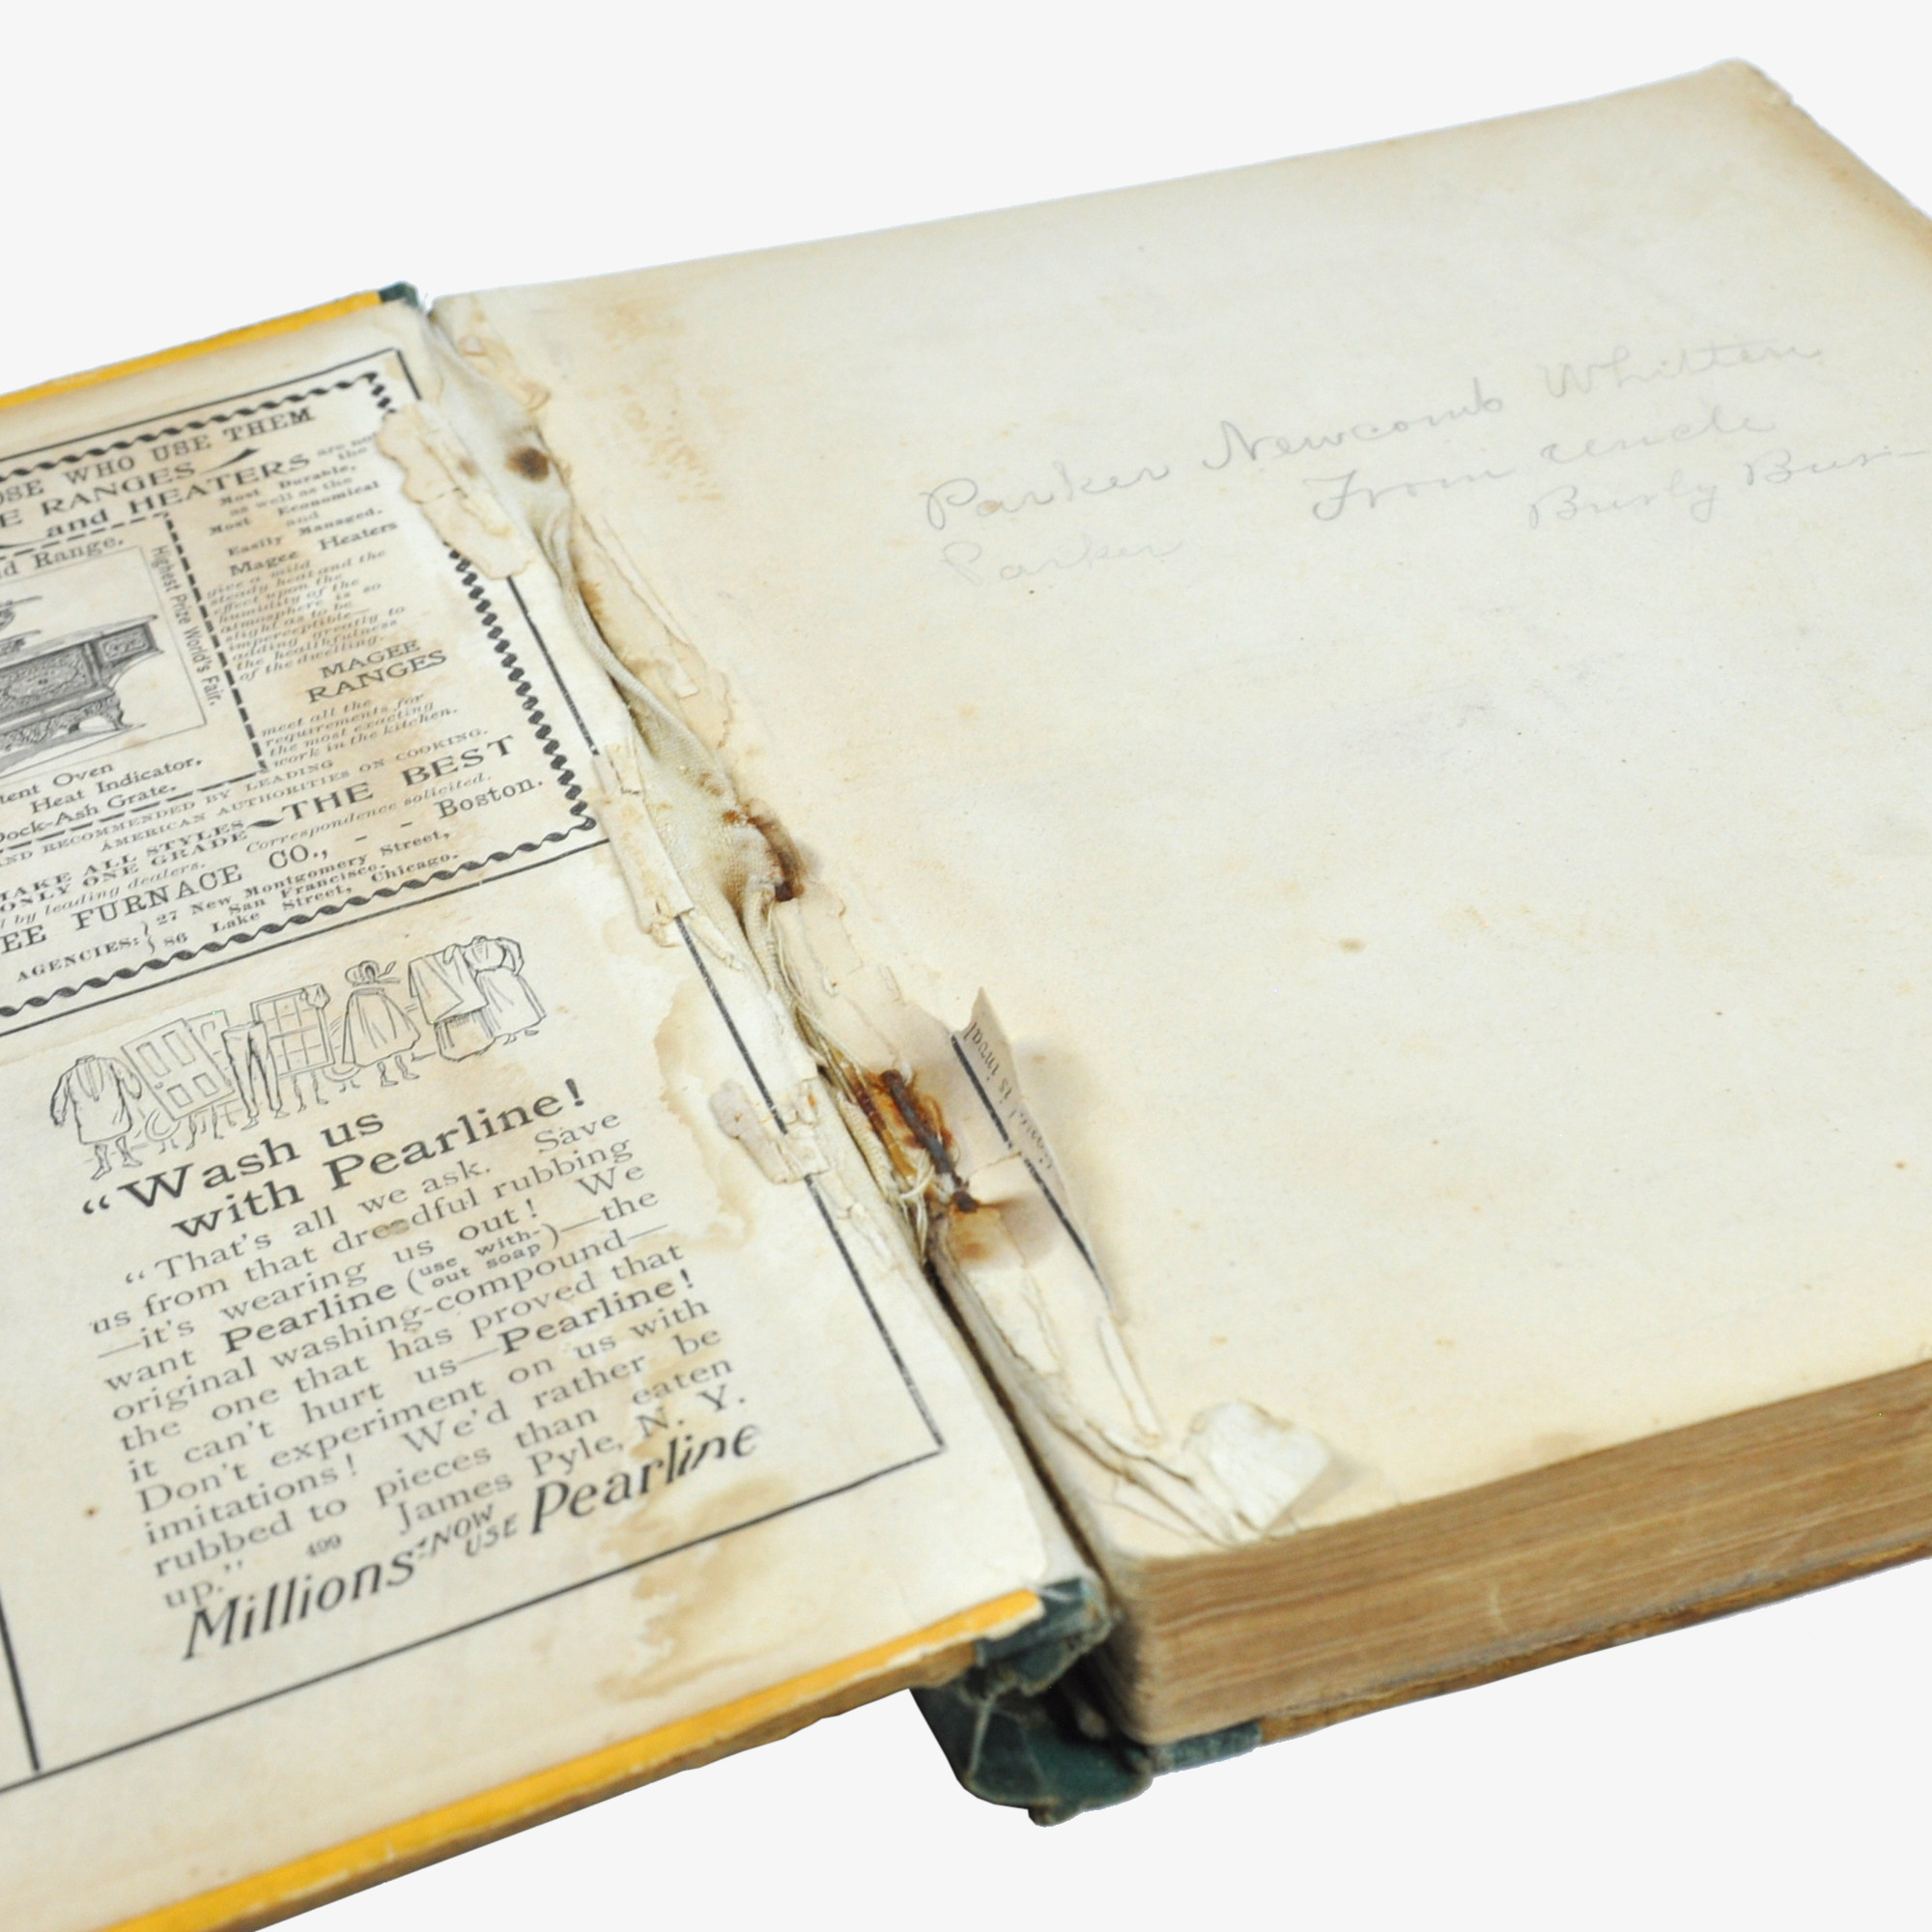 OSE WHO USE THEM
E RANGES
and HEATERS
are not
the
Most Durable,
as well as the
Most Economical
and
Easily Managed.
Magee Heaters
give a mild
steady heat and the
effect upon the
humidity of the
atmosphere is so
slight as to be
imperceptible—
adding greatly to
the healthfulness
of the dwelling.
MAGEE
RANGES
meet all the
requirements for
the most exacting
work in the kitchen.
d Range.
Highest Prize World's Fair.
tent Oven
Heat Indicator,
Dock-Ash Grate.
AND RECOMMENDED BY LEADING
AMERICAN AUTHORITIES ON COOKING.
MAKE ALL STYLES
ONLY ONE GRADE
THE BEST
by leading dealers. Correspondence solicited.
EE FURNACE CO., - - Boston.
AGENCIES: 27 New Montgomery Street,
San Francisco.
86 Lake Street, Chicago.
“Wash us
with Pearline!
“That's all we ask. Save
us from that dreadful rubbing
—it's wearing us out! We
want Pearline (use with-out soap)—the
original washing-compound—
the one that has proved that
it can't hurt us—Pearline!
Don't experiment on us with
imitations! We'd rather be
rubbed to pieces than eaten
up.” 499 James Pyle, N. Y.
Millions NOW USE Pearline
Parker Newcomb Whitten
Parker From Uncle
Burly